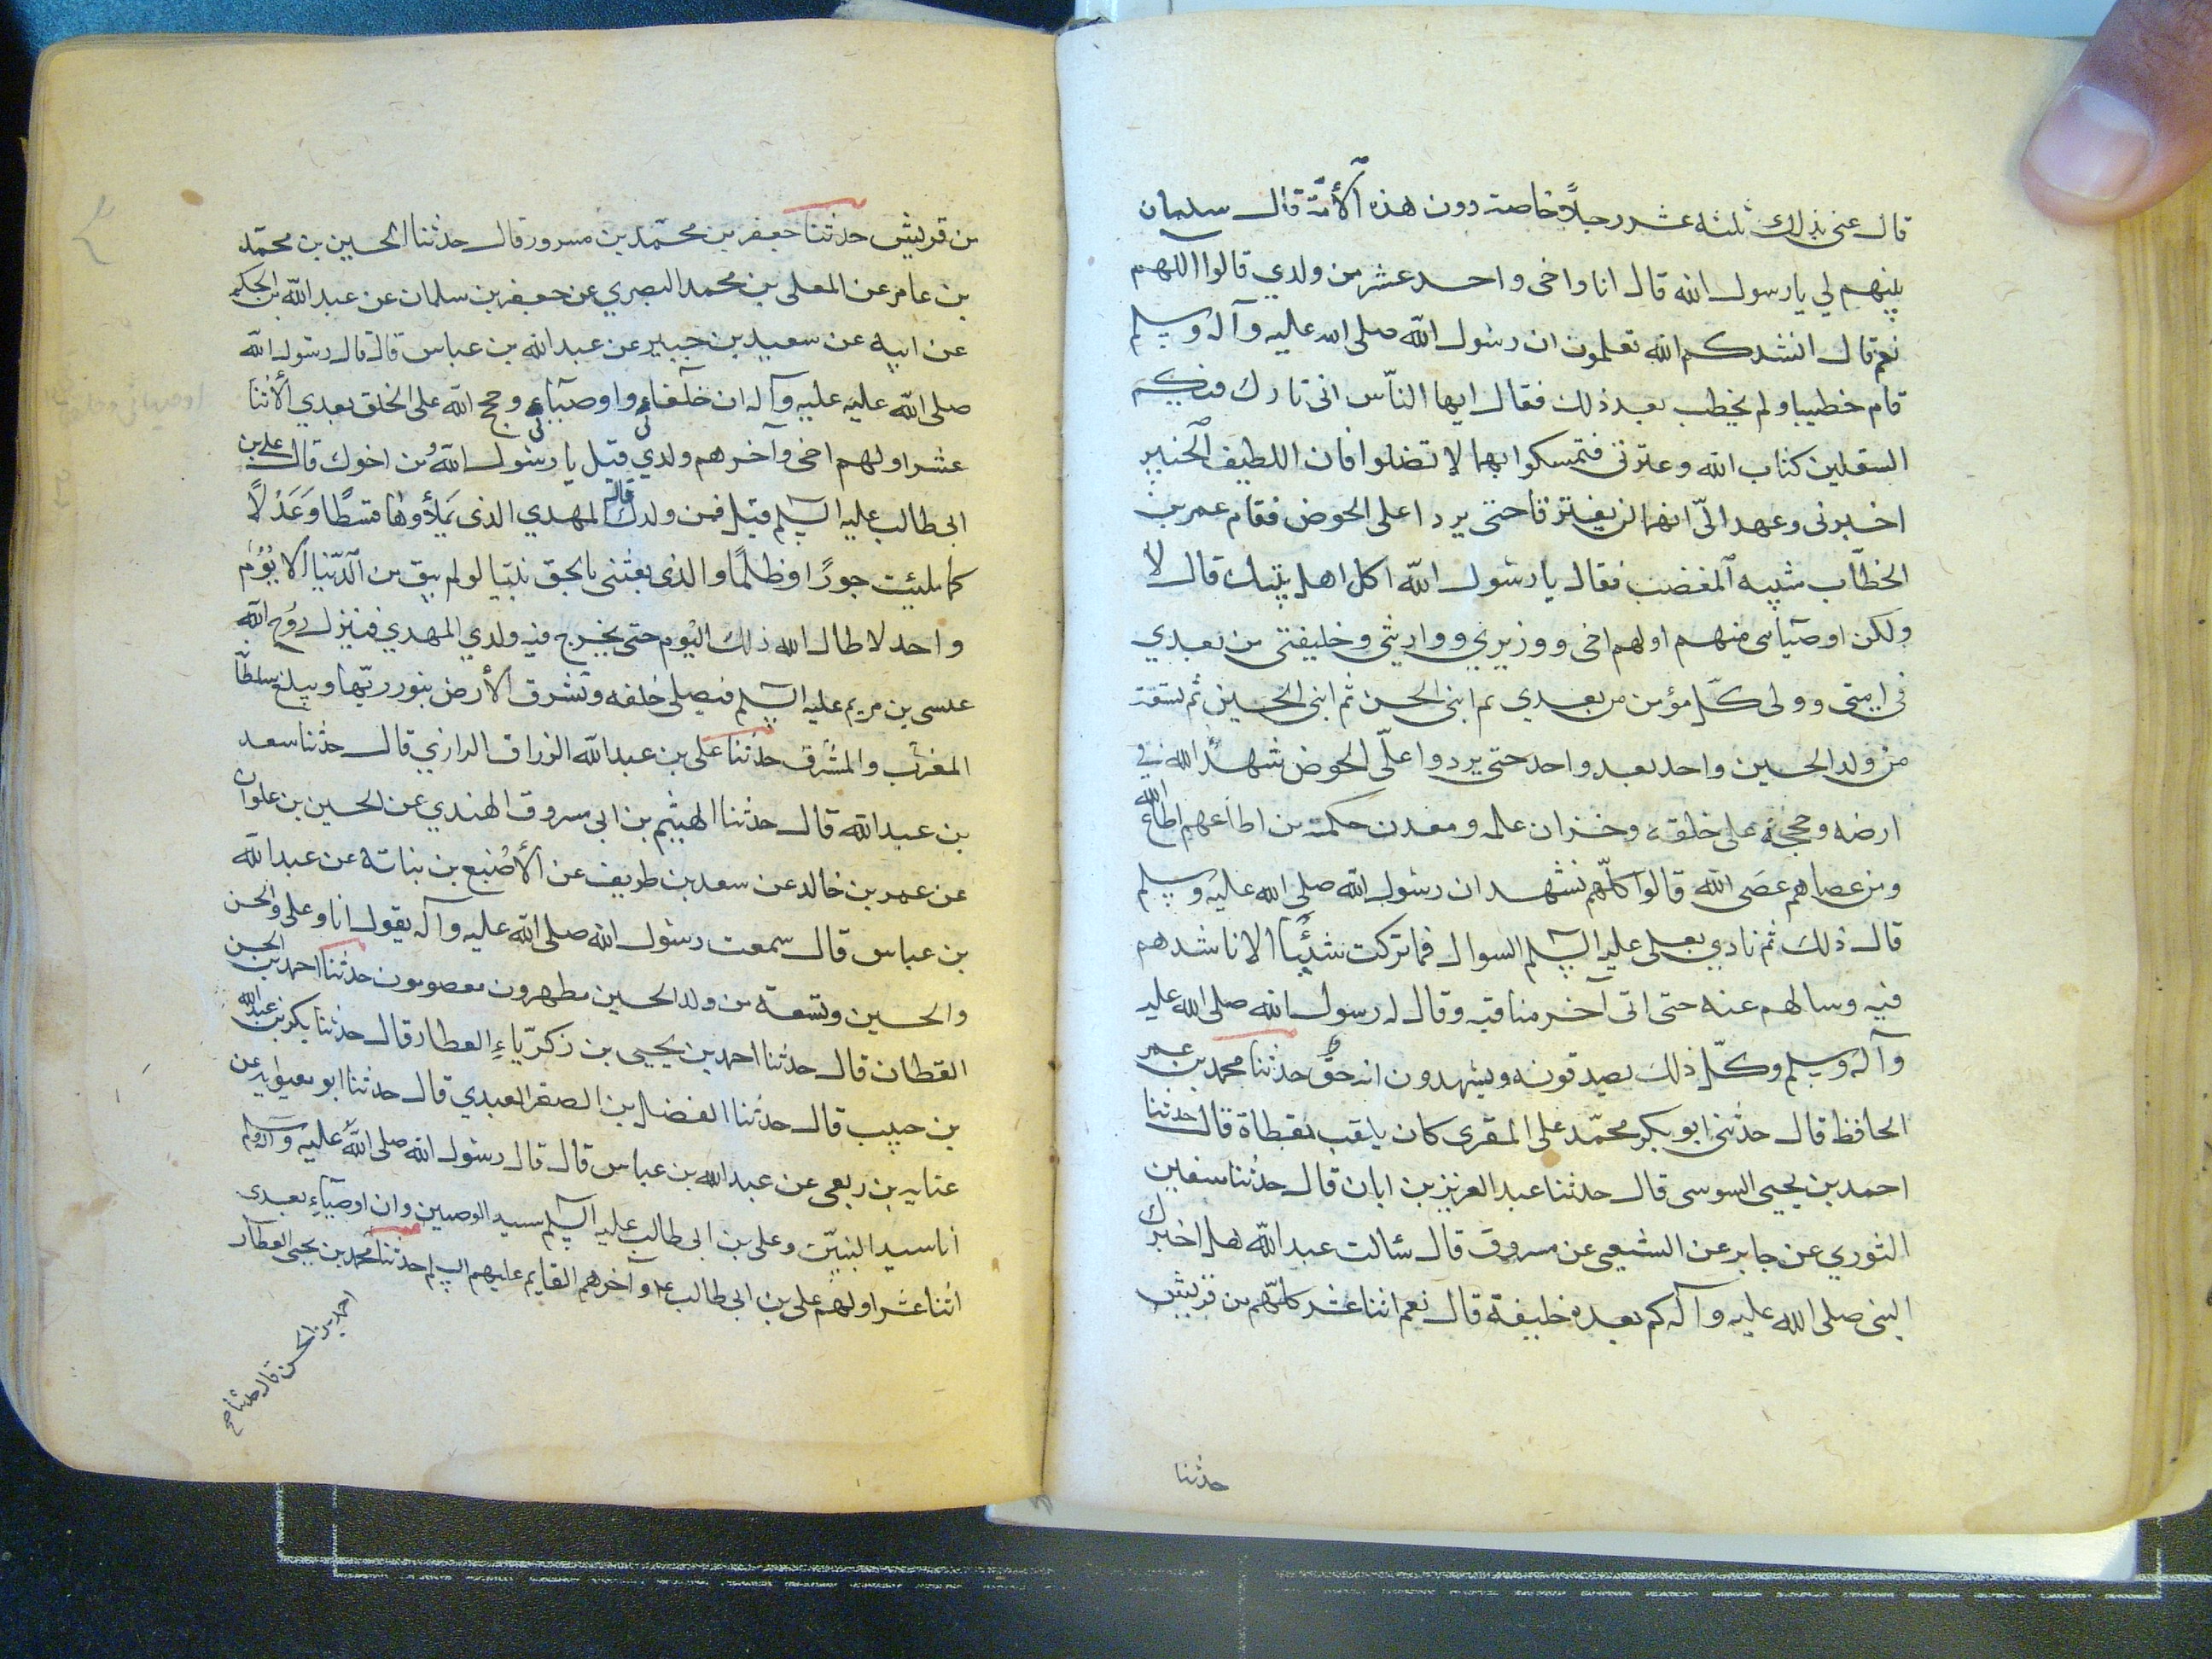 قال عنى بذلك ثلثه عشر رجلاً خاصة دون هذه الأمّة قال سلمان
بينهم لي يا رسول الله قال انا واخى واحد عشر من ولدي قالوا اللهم
نعم قال انشدكم الله تعلمون ان رسول الله صلى الله عليه وآله وسلم
قام خطيبا ولم يخطب بعد ذلك فقال ايها النّاس انى تارك فيكم
الثقلين كتاب الله وعترتى فتمسكوا بهما لا تضلوا فان اللطيف الخبير
اخبرنى وعهد الىّ انهما لن يفترقا حتى يردا على الحوض فقام عمر بن
الخطّاب شبيه المغضب فقال يا رسول الله اكل اهل بيتك قال لا
ولكن اوصيآى منهم اولهم اخى ووزيري ووارثي وخليفتى من بعدي
فى امتى وولى كلّ مؤمن من بعدي ثم ابنى الحسن ثم ابنى الحسين ثم تسعة
من ولد الحسين واحد بعد واحد حتى يردوا علىّ الحوض شهدآ الله في
ارضه وحججه على خلقه وخزان علمه ومعدن حكمته من اطاعهم اطاع الله
ومن عصاهم عصى الله قالوا كلّهم نشهد ان رسول الله صلى الله عليه وسلم
قال ذلك ثم نادي بعلى عليه السلم السوال فما تركت شيئًا الا ناشدهم
فيه وسالهم عنه حتى اتى آخر مناقبه وقال له رسول الله صلى الله عليه
وآله وسلم وكلّ ذلك يصدقونه ويشهدون انه حقّ حدثنا محمد بن عمر
الحافظ قال حدثنى ابو بكر محمّد على المقرى كان يلقب بقطاة قال حدثنا
احمد بن يحيى السوسى قال حدثنا عبد العزيز بن ابان قال حدثنا سفين
الثوري عن جابر عن الشعبى عن مسروق قال سالت عبد الله هل اخبرك
النبى صلى الله عليه وآله كم بعده خليفة قال نعم اثنا عشر كلهم من قريش
حدثنا
من قريش حدثنا جعفر بن محمّد بن مسرور قال حدثنا الحسين بن محمّد
بن عامر عن المعلى بن محمد البصري عن جعفر بن سلمان عن عبد الله بن الحكم
عن ابيه عن سعيد بن جبير عن عبد الله بن عباس قال قال رسول الله
صلى الله عليه عليه وآله ان خلفائى واوصيائى وحجج الله على الخلق بعدي الأثنا
عشر اولهم اخى وآخرهم ولدي قيل يا رسول الله من اخوك قال على بن
ابى طالب عليه السلم قيل فمن ولدك قال المهدي الذى يملأوها قسطًا وعدلاً
كما ملئت جورًا وظلمًا والذى بعثنى بالحق نبيا لو لم يبق من الدّنيا الا يوم
واحد لاطال الله ذلك اليوم حتى يخرج فيه ولدي المهدي فينزل روح الله
عيسى بن مريم عليه السلم فيصلى خلفه وتشرق الأرض بنور ربّها ويبلغ سلطانه
المغرب والمشرق حدثنا على بن عبد الله الوراق الرازي قال حدثنا سعد
بن عبد الله قال حدثنا الهيثم بن ابى مسروق الهندي عن الحسين بن علوان
عن عمر بن خالد عن سعد بن طريف عن الأصبغ بن بناتة عن عبد الله
بن عباس قال سمعت رسول الله صلى الله عليه وآله يقول انا وعلى والحسن
والحسين وتسعة من ولد الحسين مطهرون معصومون حدثنا احمد بن الحسن
القطان قال حدثنا احمد بن يحيى بن زكريّاء العطار قال حدثنا بكر بن عبد الله
بن حبيب قال حدثنا الفضل بن الصقر العبدي قال حدثنا ابو معويه عن
عبايه بن ربعى عن عبد الله بن عباس قال قال رسول الله صلى الله عليه وآله وسلم
أنا سيد النبيّن وعلى بن ابى طالب عليه السلم سيد الوصيين وان اوصياء بعدى
اثنا عشر اولهم على بن ابى طالب عه وآخرهم القايم عليهم السلم حدثنا محمد بن يحيى العطار
احمد بن الحسن قال حدثنا صح